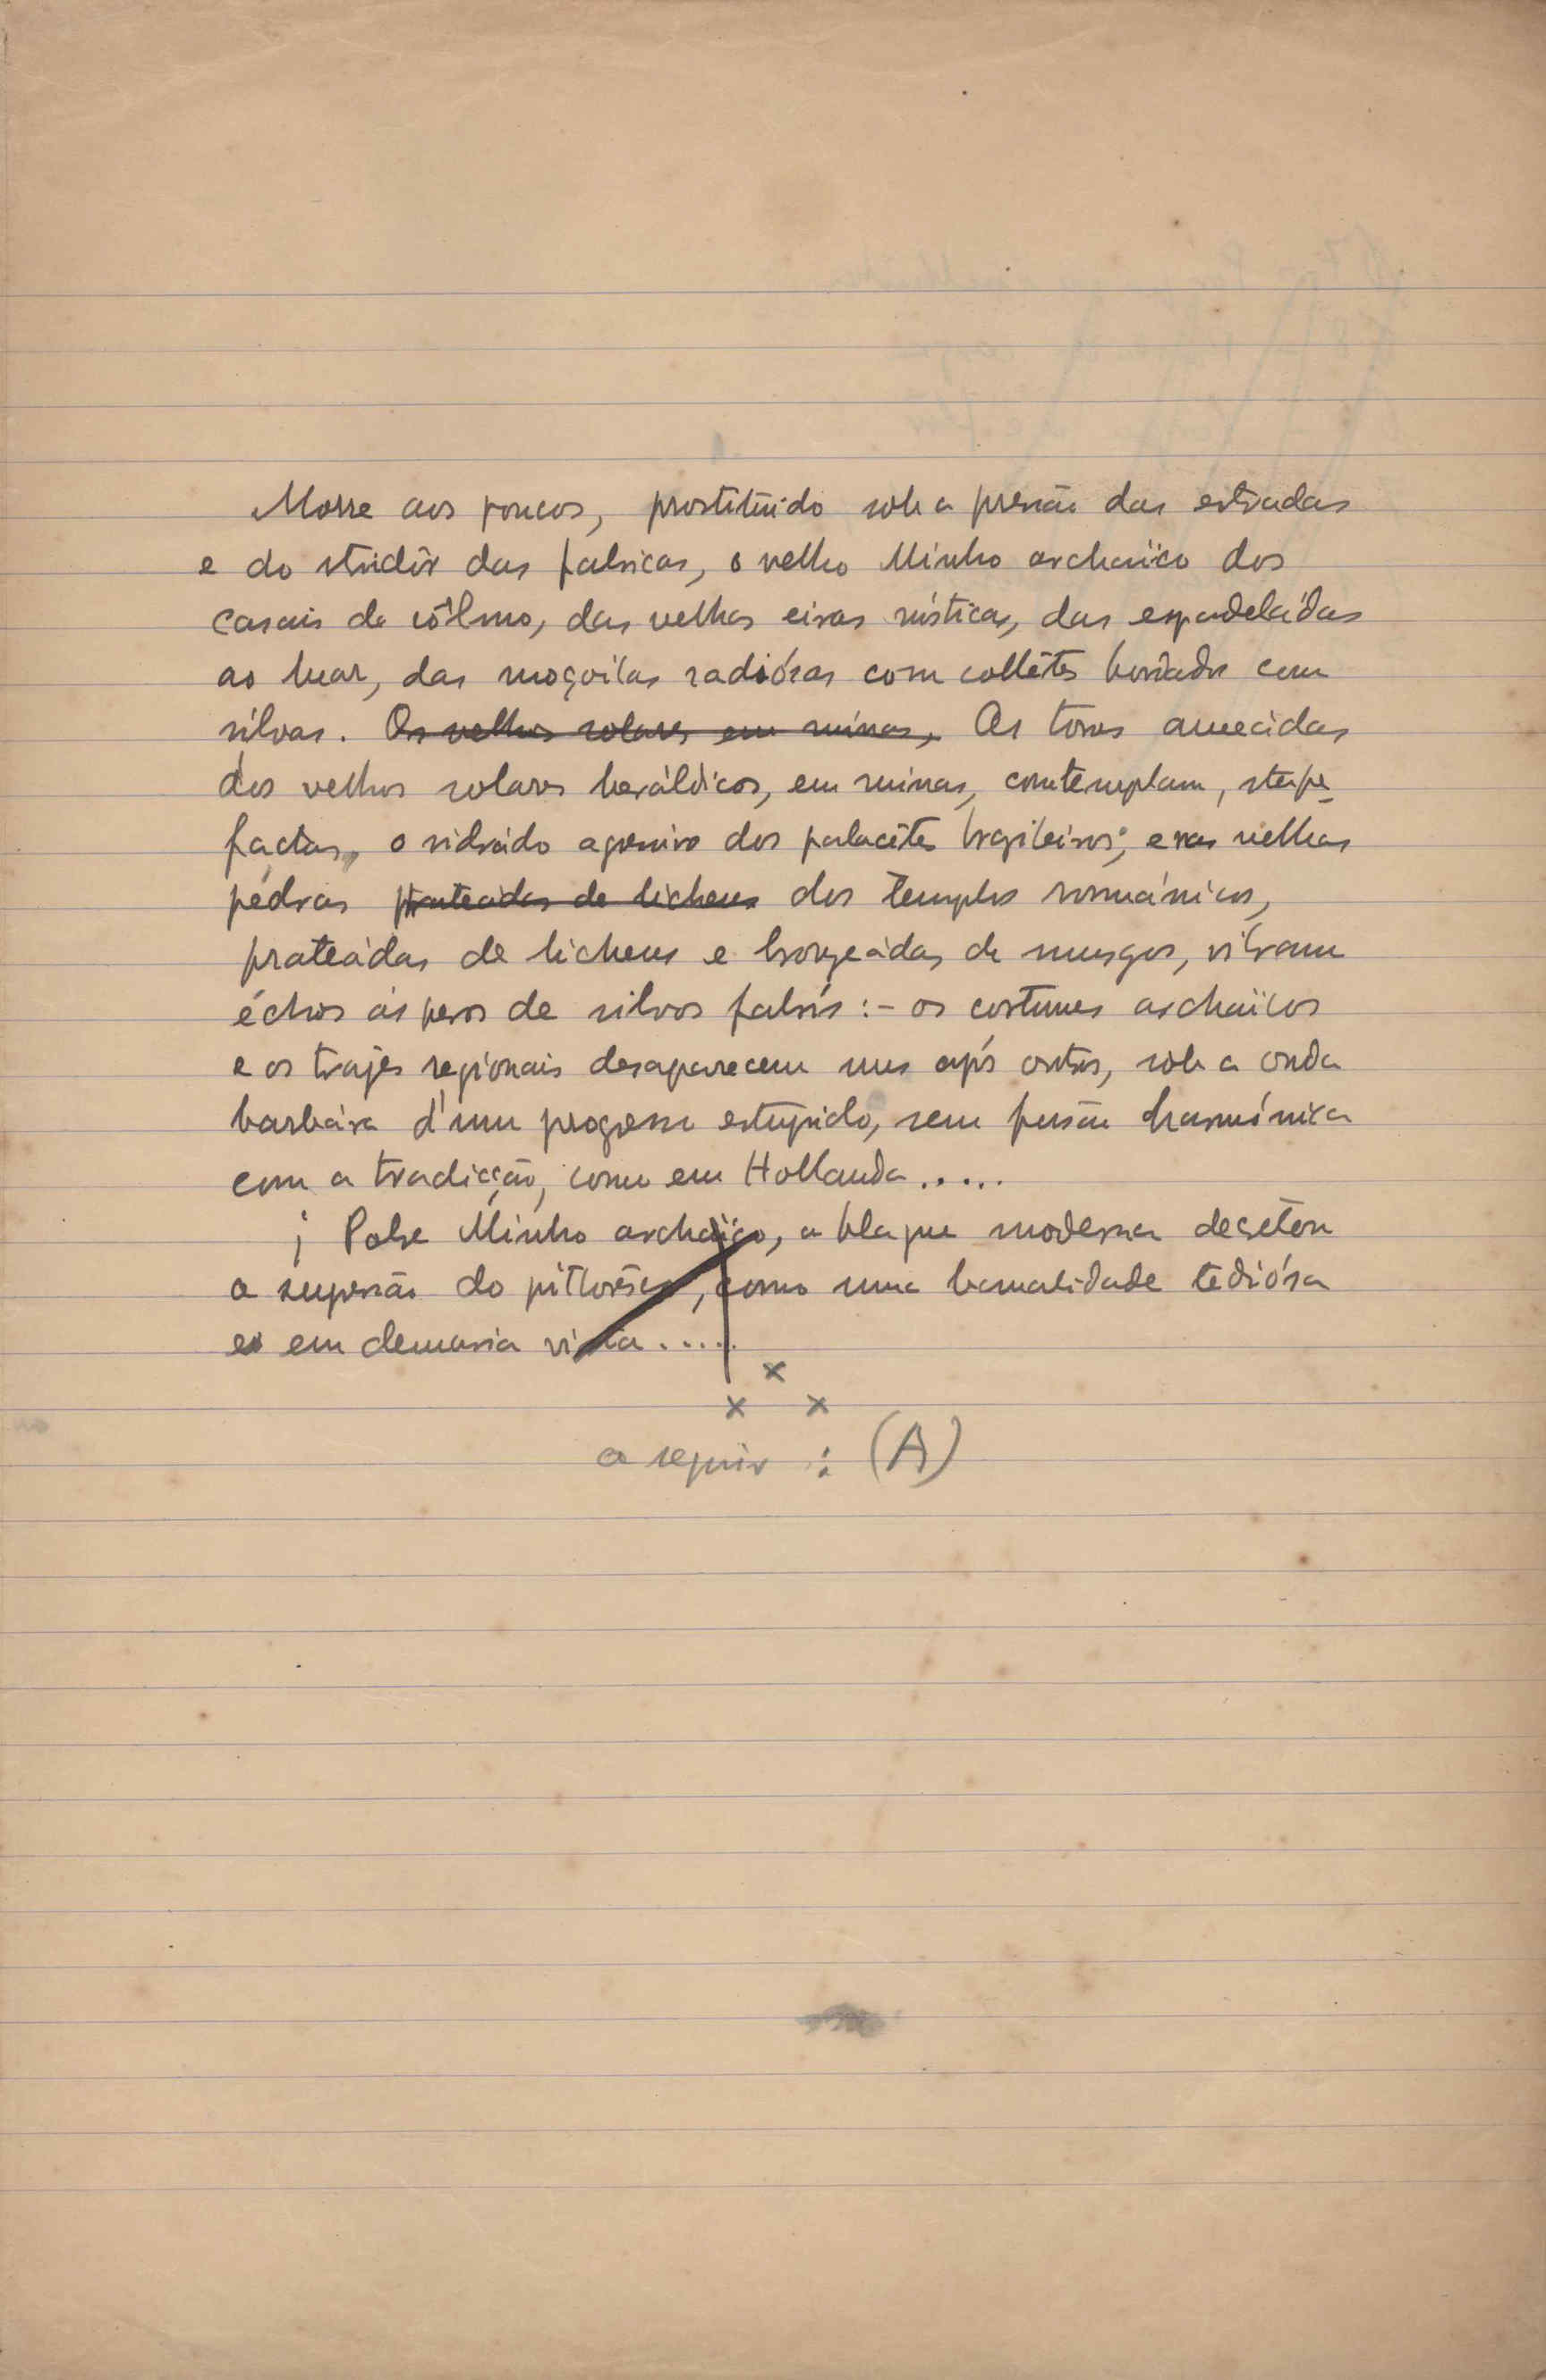 Morre aos poucos, prostituido sob a pressão das estradas
e do stridôr das fabricas, o velho Minho archaïco dos
casais de côlmo, das velhas eiras rústicas, das espadeládas
ao luar, das moçoilas radiósas com collêtes bordados com
silvas. Os velhos solares em ruinas, As torres ameiadas
dos velhos solares heráldicos, em ruinas, comtemplam, stupe-
factas, o vidrádo agressivo dos palacêtes brazileiros; e nas velhas
pédras prateadas de lichens dos templos românicos,
prateádas de lichens e bronzeádas de musgos, vibram
échos ásperos de silvos fabrís :- os costumes archaïcos
e os trajes regionais desaparecem uns após outros, sob a onda
barbára d'um progresso estupido, sem fusão harmónica
com a tradicção, como em Hollanda.....
¡ Pobre Minho archaïco, a blague moderna decretou
a supressão do pittorêsco, como uma banalidade tediósa
e em demasia vista.....
x
x x
a seguir : (A)